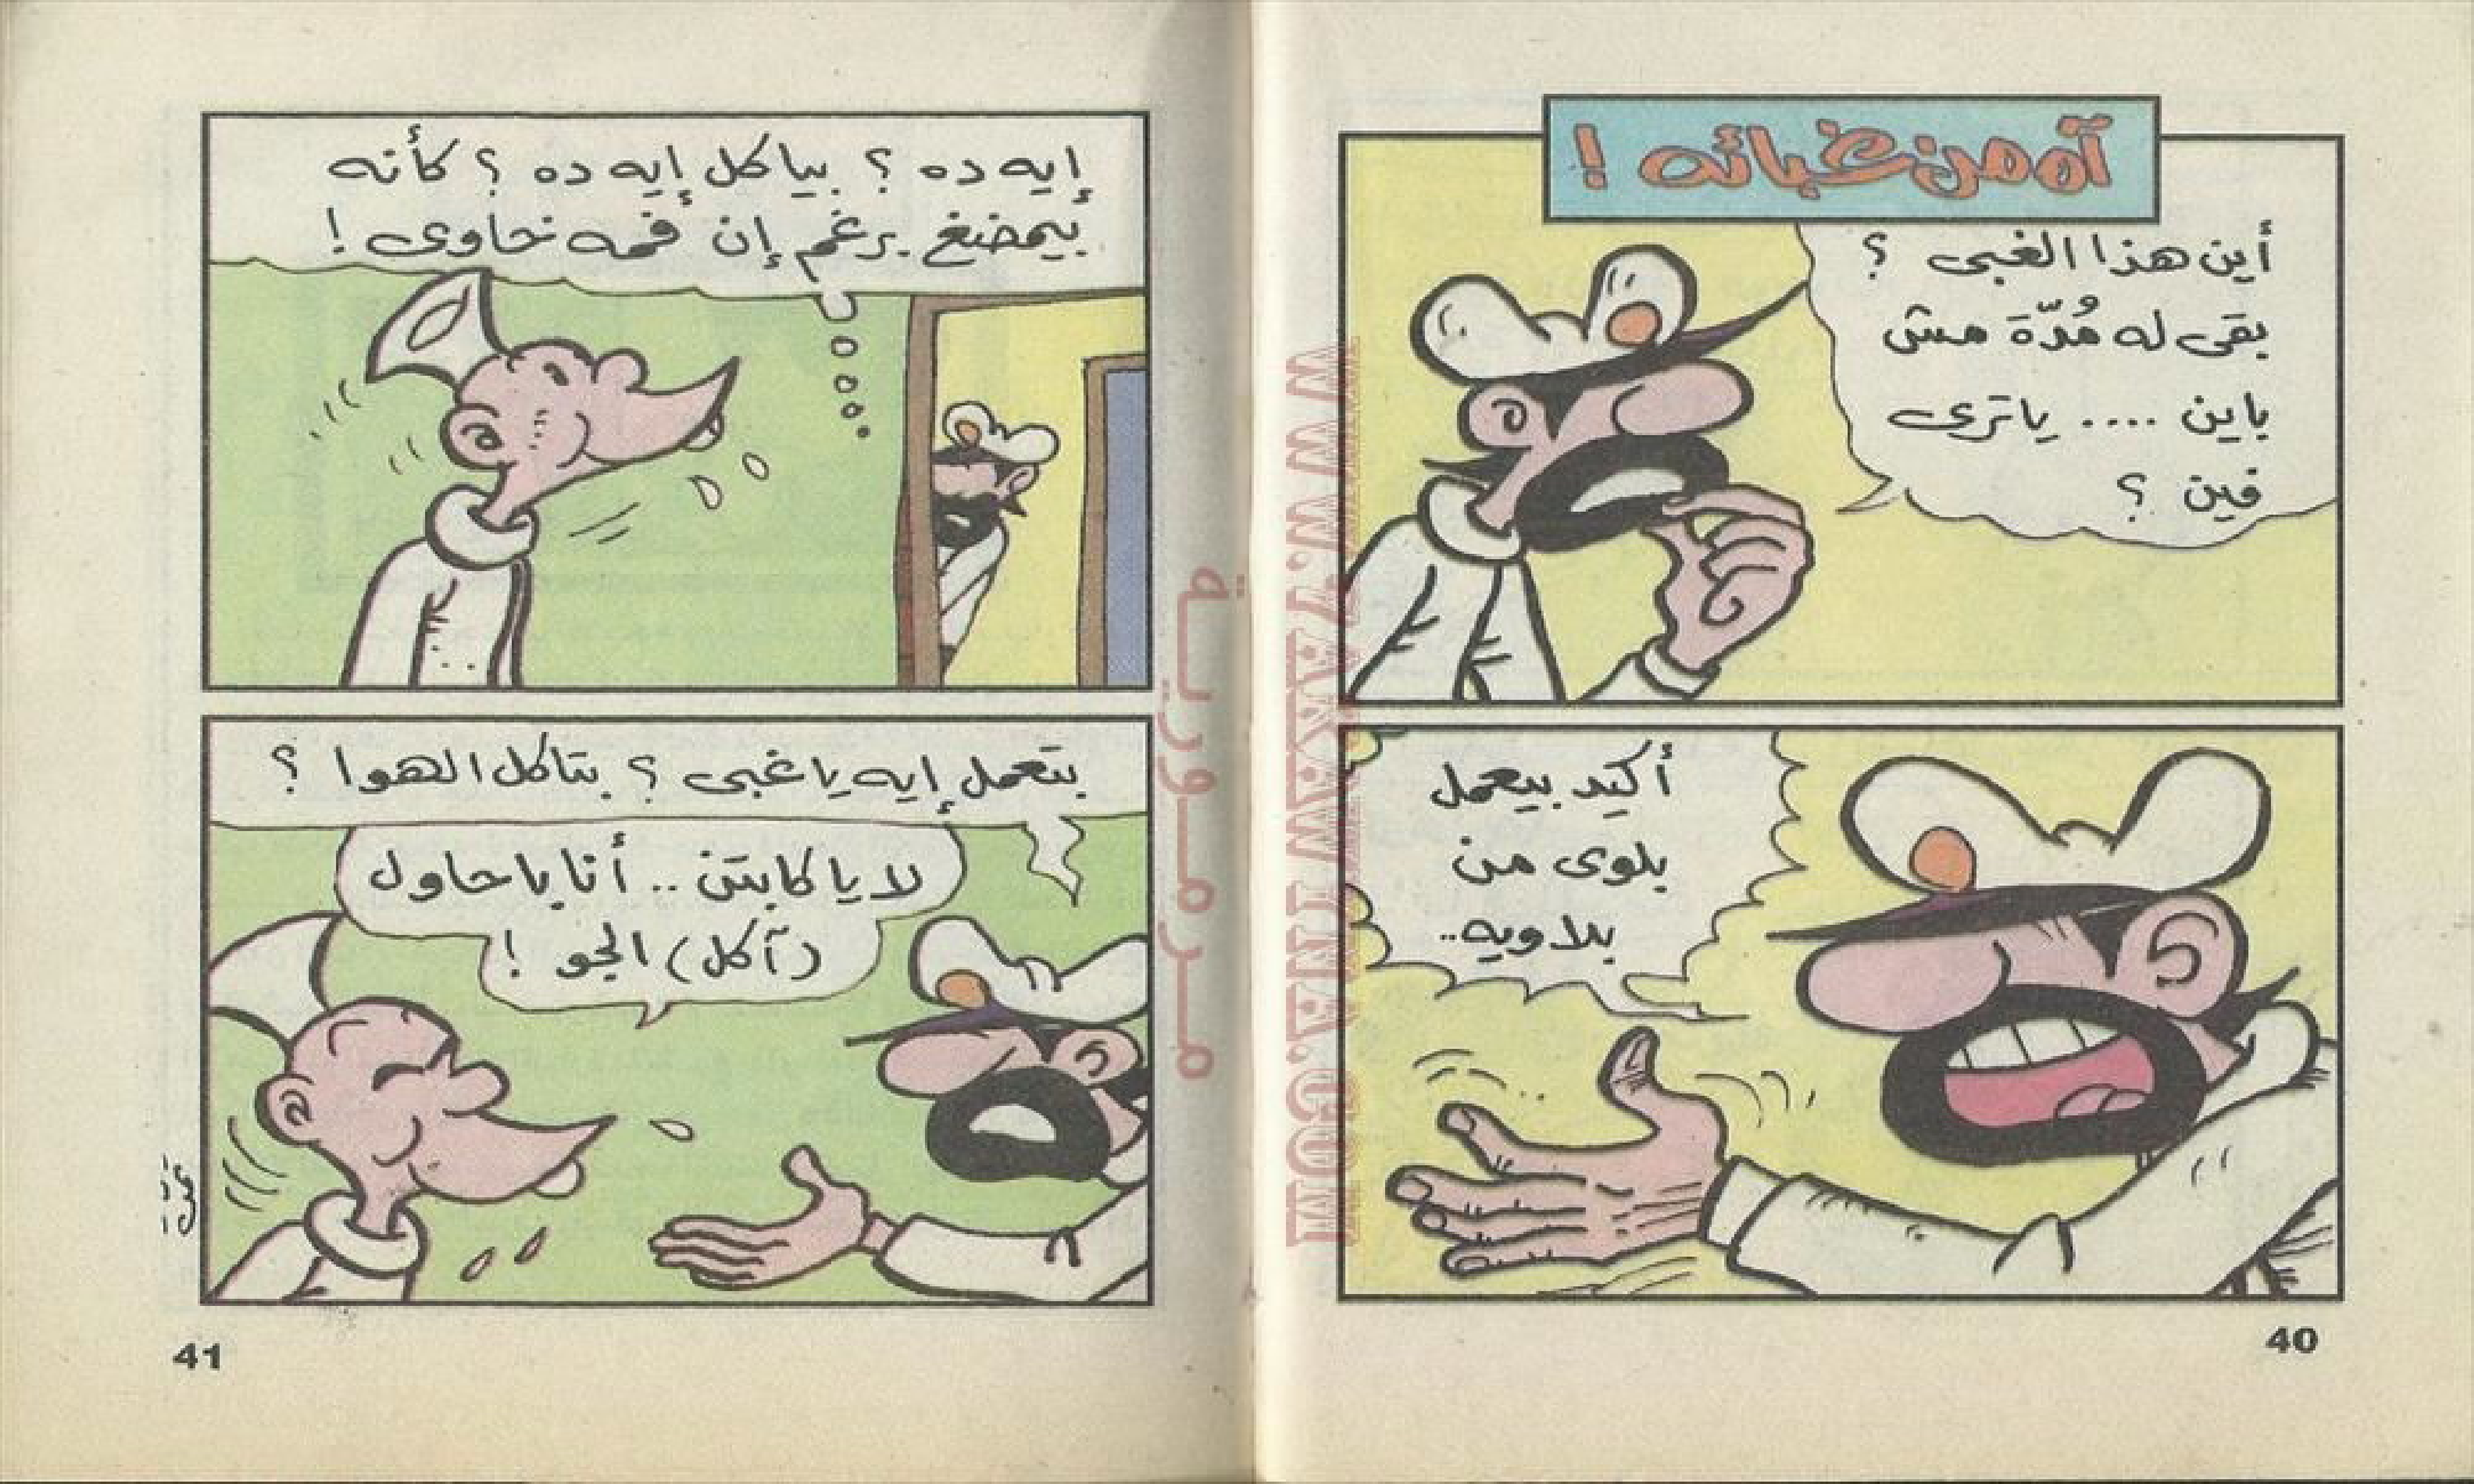 آه من غبائه !
أين هذا الغبى ؟
بقى له مُدّة مش
باين .... ياترى
فين ؟
أكيد بيعمل
بلوى من
بلاويه..
40
إيه ده ؟ بياكل إيه ده ؟ كأنه
بيمضغ برغم إن فمه خاوى !
بتعمل إيه يا غبى ؟ بتاكل الهوا ؟
لا يا كابتن .. أنا باحاول
(آكل) الجو !
41
مرمورية